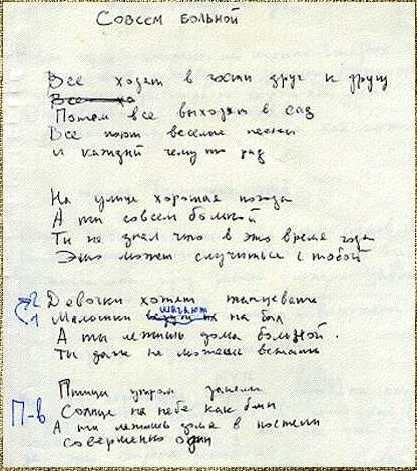 Совсем больной
Все ходят в гости друг к другу
Все хо
Потом все выходят в сад
Все поют веселые песни
И каждый чему то рад
На улице хорошая погода
А ты совсем больной
Ты не знал что в это время года
Это может случиться с тобой
2 Девочки хотят танцевать
шагают
1 Малышки на бал
А ты лежишь дома больной.
Ты даже не можешь встать
Птицы утром запели
П-в Солнце на небе как блин
А ты лежишь дома в постели
Совершенно один